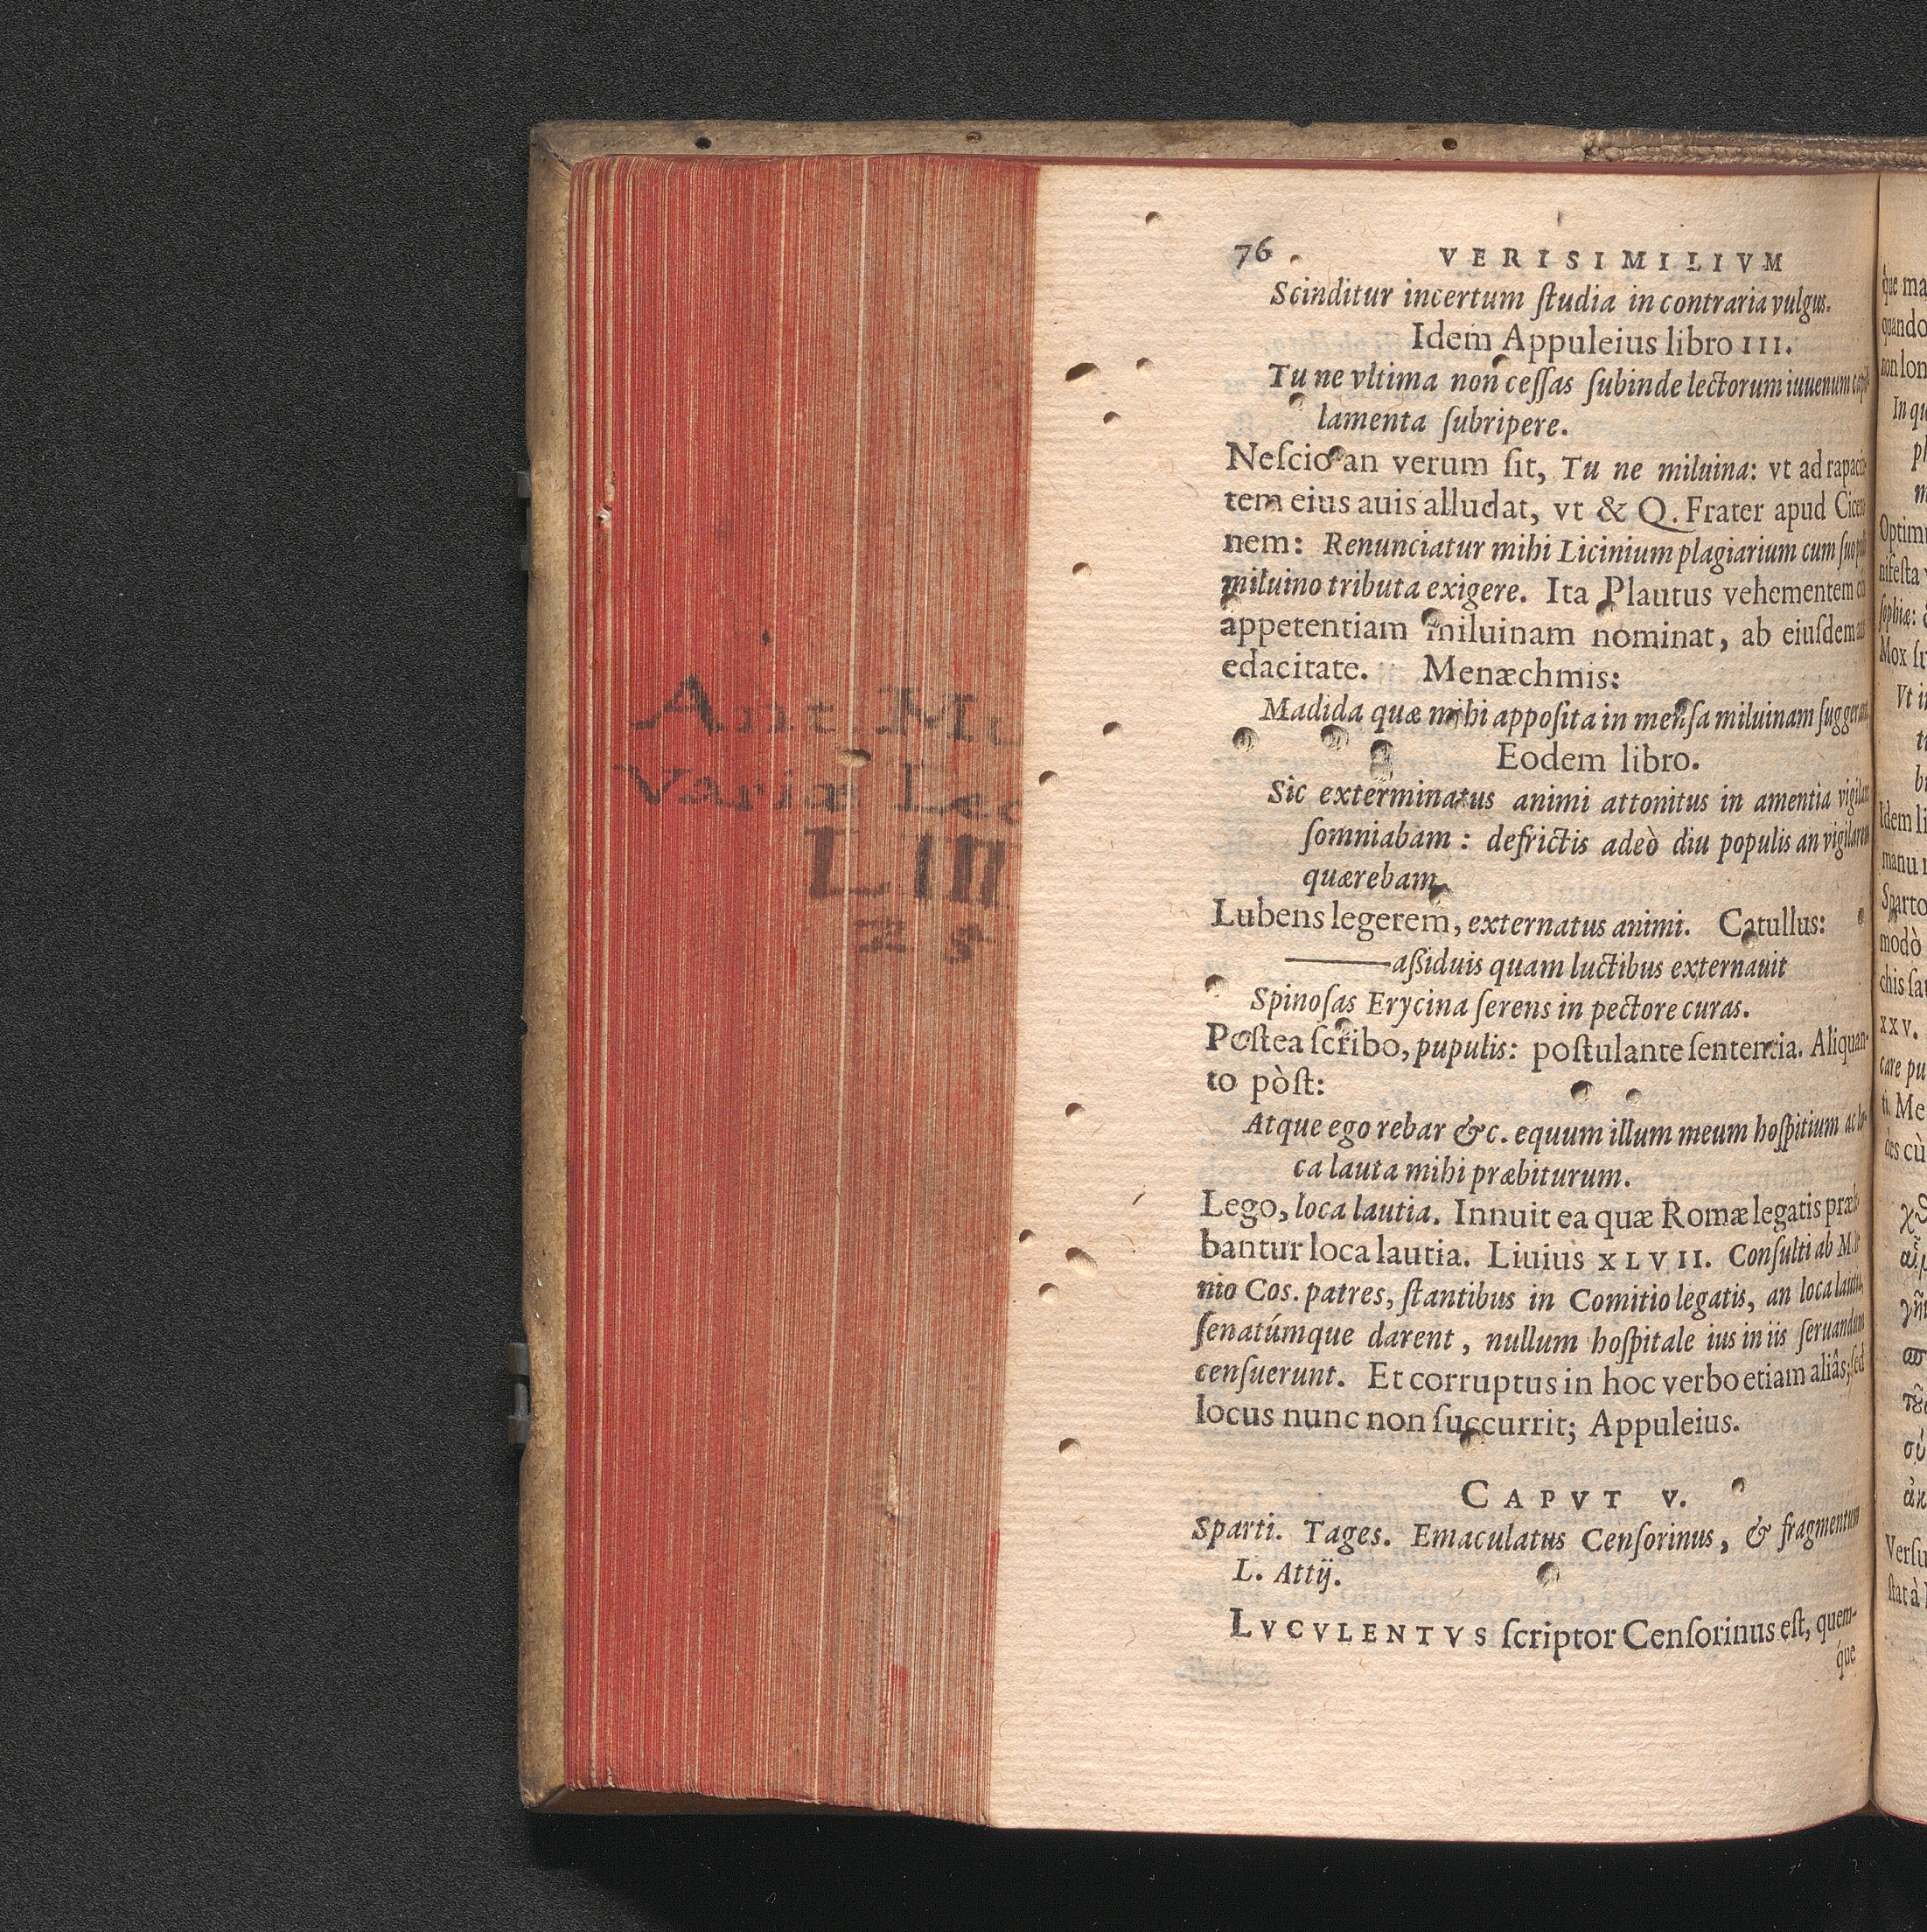 Ant. Mu
Variæ Lec
LIII
76 VERISIMILIVM
Scinditur incertum ſtudia in contraria vulgus.
Idem Appuleius libro III.
Tu ne vltima non ceſſas ſubinde lectorum iuuenum capil-
lamenta ſubripere.
Neſcio an verum ſit, Tu ne miluina: vt ad rapaci-
tem eius auis alludat, vt & Q. Frater apud Cicero-
nem: Renunciatur mihi Licinium plagiarium cum ſuo
miluino tributa exigere. Ita Plautus vehementem
appetentiam miluinam nominat, ab eiuſdem
edacitate. Menæchmis:
Madida quæ mihi appoſita in menſa miluinam ſuggerant
Eodem libro.
Sic exterminatus animi attonitus in amentia vigilans
ſomniabam: defrictis adeò diu populis an vigilarem
quærebam
Lubens legerem, externatus animi. Catullus:
——aſsiduis quam luctibus externauit
Spinoſas Erycina ſerens in pectore curas.
Poſtea ſcribo, pupulis: poſtulante ſententia. Aliquan-
to pòſt:
Atque ego rebar &c. equum illum meum hoſpitium ac lo-
ca lauta mihi præbiturum.
Lego, loca lautia. Innuit ea quæ Romæ legatis præ
bantur loca lautia. Liuius XLVII. Conſulti ab M.
nio Cos. patres, ſtantibus in Comitio legatis, an loca lautia,
ſenatúmque darent, nullum hoſpitale ius in iis ſeruandum
cenſuerunt. Et corruptus in hoc verbo etiam aliâs; ſed
locus nunc non ſuccurrit; Appuleius.
CAPVT V.
Sparti. Tages. Emaculatus Cenſorinus, & fragmentum
L. Attij.
LVCVLENTVS ſcriptor Cenſorinus eſt, quem-
que
que ma
quando
non lon
In qu
Optim
nifeſta
ſophiæ:
Mox
Vt i
Idem li
manu
Sparto
modò
chis ſa
XXV.
care pu
ti. Me
des cù
Verſu
ſtat à